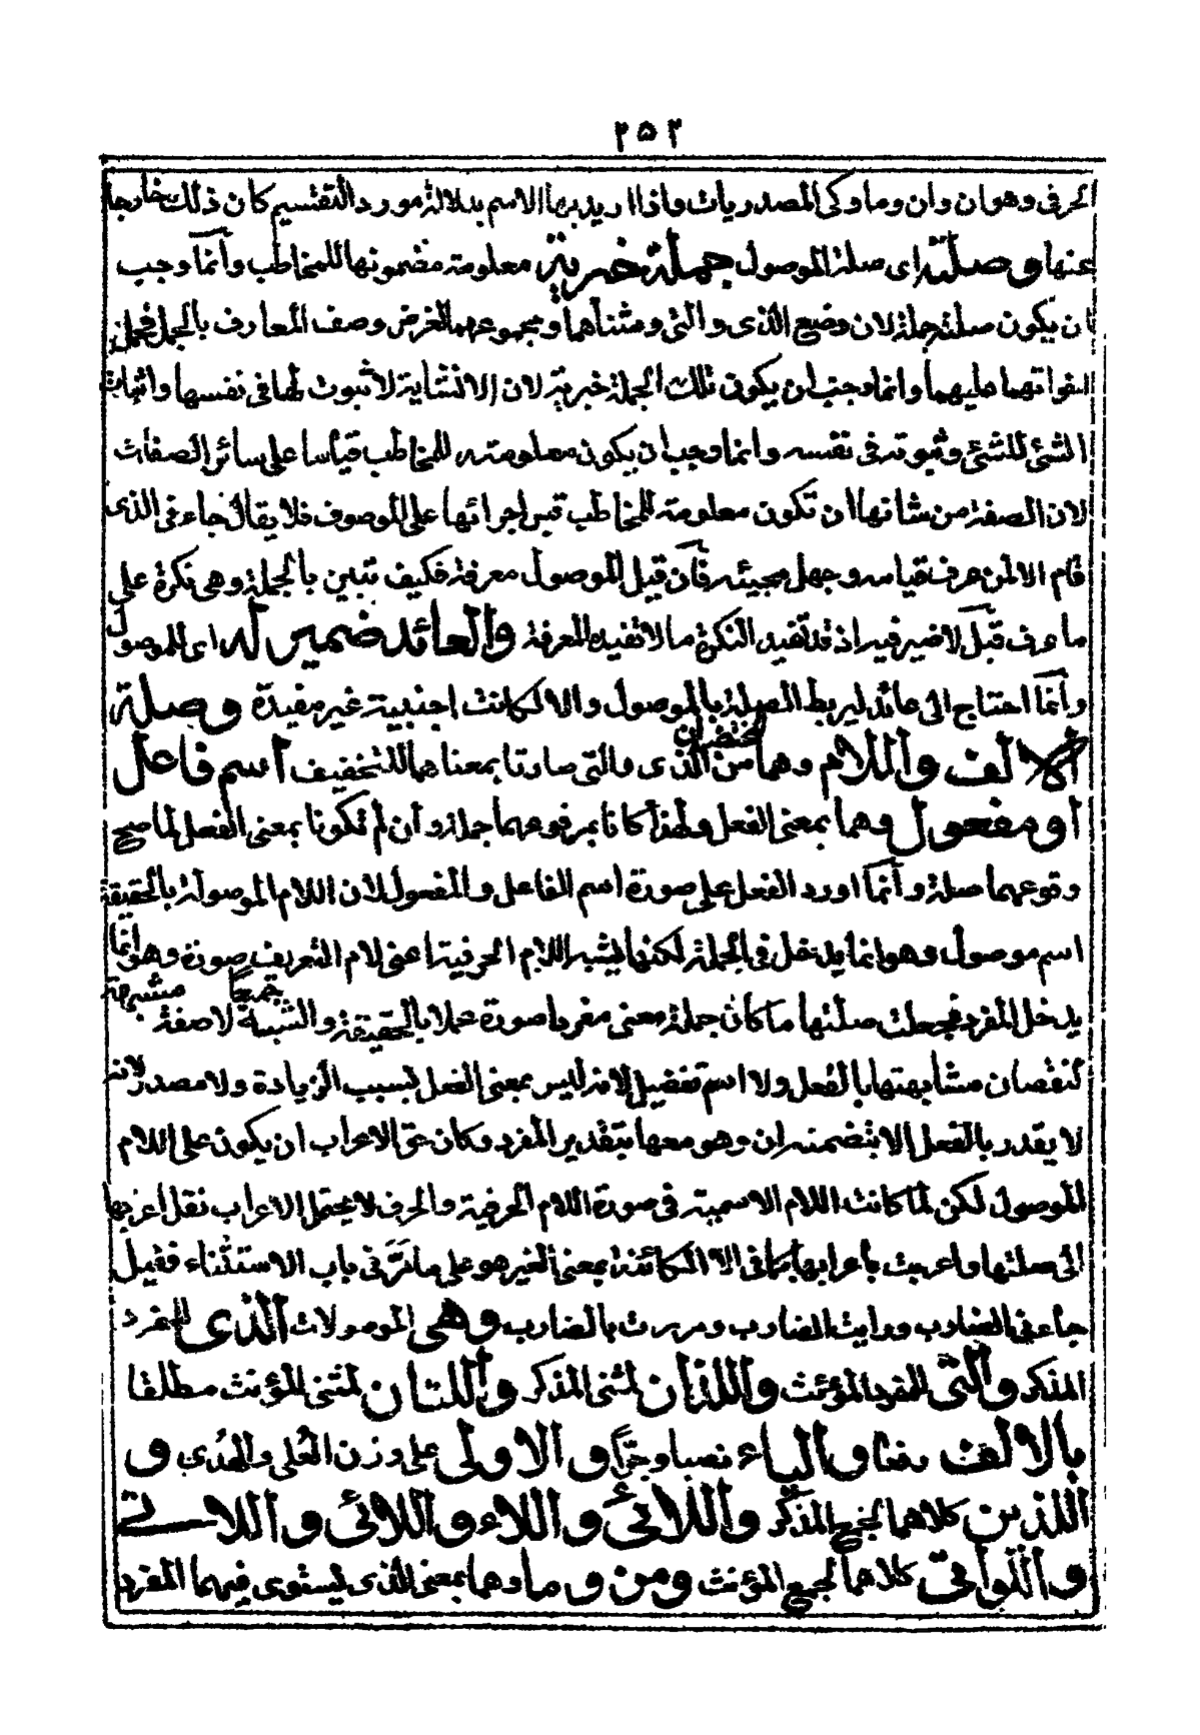 ٢٥٢
الحرفى وهو ان وان وما وكى المصدريات واذا اريد بها الاسم بدلالة مورد التقسيم كان ذلك خارجا
عنها وصلته اى صلة الموصول جملة خبرية معلومة مضمونها للمخاطب وانما وجب
ان يكون صلته جملة لان وضع الذى والتى ومثناهما ومجموعهما لغرض وصف المعارف بالجمل فحمل
اخواتهما عليهما وانما وجب ان يكون تلك الجملة خبرية لان الانشاية لا ثبوت لها فى نفسها واثبات
الشئ للشئ وثبوته فى نفسه وانما وجب ان يكون معلومة للمخاطب قياسا على سائر الصفات
لان الصفة من شانها ان تكون معلومة للمخاطب قبل اجرائها على الموصوف فلا يقال جاءنى الذى
قام الا لمن عرف قيامه وجهل مجيئه فان قيل الموصول معرفة فكيف تبين بالجملة وهى نكرة على
ما عرف قيل لا ضير فيه اذ قد تفيد النكرة ما لا تفيده المعرفة والعائد ضمير له اى للموصول
وانما احتاج الى عائد ليربط الصلة بالموصول والا لكانت اجنبية غير مفيدة وصلة
الالف واللام وهما مختصران من الذى والتى صارتا بمعناهما للتخفيف اسم فاعل
او مفعول وهما بمعنى الفعل ولهذا كانا بمرفوعهما جملة وان لم تكونا بمعنى الفعل لما صح
وقوعهما صلة وانما اورد الفعل على صورة اسم الفاعل والمفعول لان اللام الموصولة بالحقيقة
اسم موصول وهو انما يدخل فى الجملة لكنها يشبه اللام الحرفية اعنى لام التعريف صورة وهو انما
يدخل المفرد فجعلت صلتها ما كان جملة معنى مفردا صورة عملا بالحقيقة والشبه جميعا لا صفة مشبهة
لنقصان مشابهتها بالفعل ولا اسم تفضيل لانه ليس بمعنى الفعل بسبب الزيادة ولا مصدر لانه
لا يقدر بالفعل الا بتضمنه ان وهو معها بتقدير المفرد وكان حق الاعراب ان يكون على اللام
الموصول لكن لما كانت اللام الاسمية فى صورة اللام الحرفية والحرف لا يحتمل الاعراب نقل اعرابها
الى صلتها واعربت باعرابها كما فى الا الكائنة بمعنى الغير هو على ما مَرَّ فى باب الاستثناء فقيل
جاءنى الضارب ورايت الضارب ومررت بالضارب وهى الموصولات الذى للمفرد
المذكر والتى للمفرد المؤنث واللذان لمثنى المذكر واللتان لمثنى المؤنث مطلقا
بالالف رفعا والياء نصبا وجرًّا والاولى على وزن العُلى والهُدى و
اللذين كلاهما لجمع المذكّر واللائى واللاء واللائى واللاتى
واللواتى كلاهما لجمع المؤنث ومن وما وهما بمعنى الذى يستوى فيهما المفرد